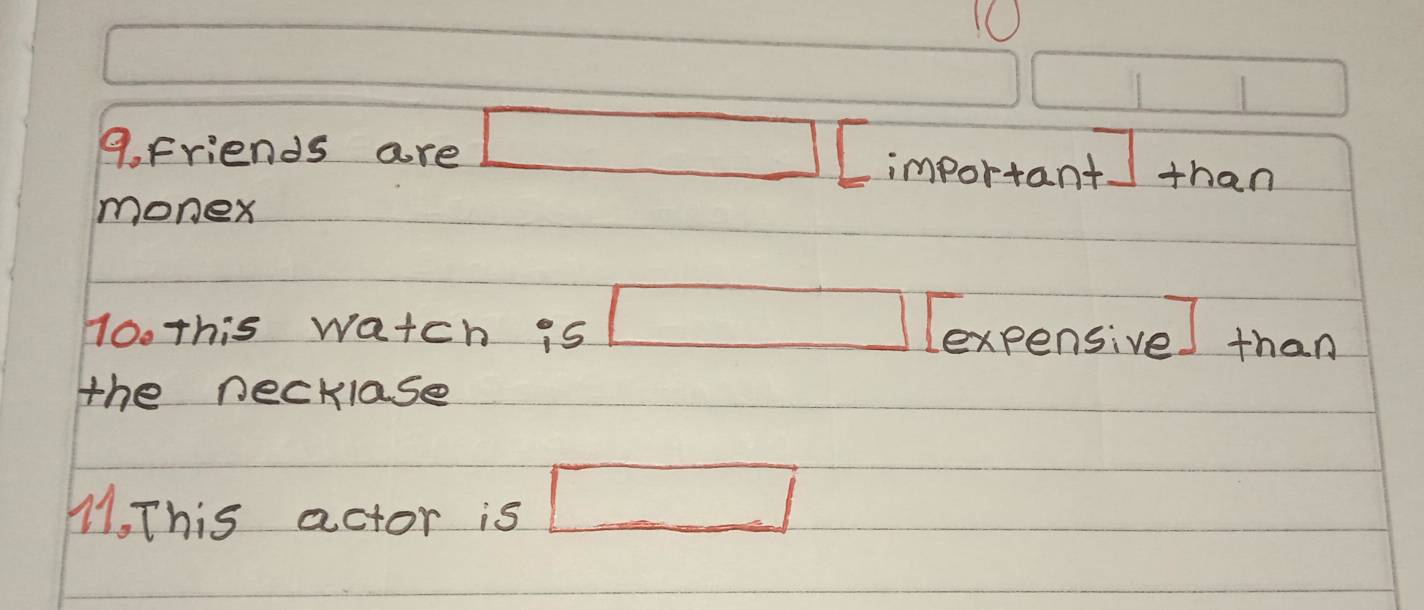 10
9. Friends are [important] than
monex
10. This watch is [expensive] than
the necklase
11. This actor is